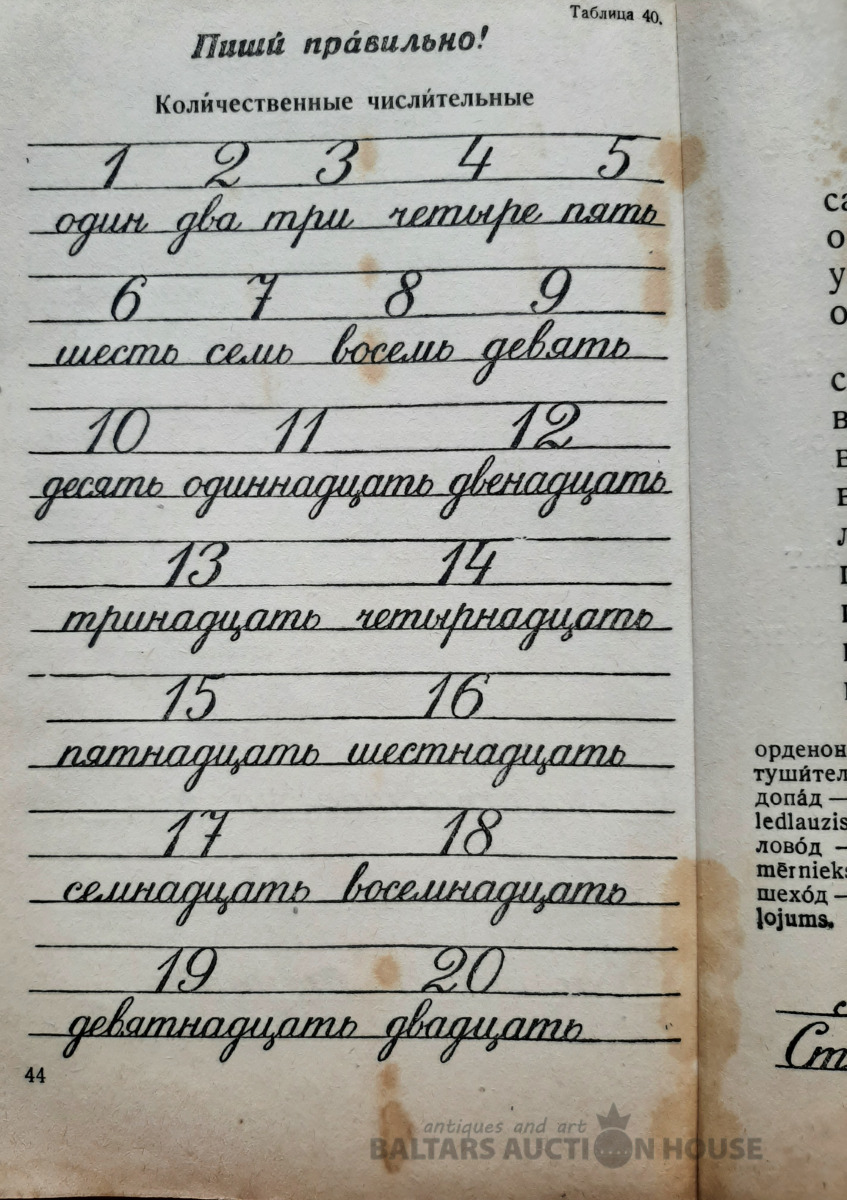 Таблица 40.
Пиши́ пра́вильно!
Коли́чественные числи́тельные
1 2 3 4 5
один два три четыре пять
6 7 8 9
шесть семь восемь девять
10 11 12
десять одиннадцать двенадцать
13 14
тринадцать четырнадцать
15 16
пятнадцать шестнадцать
17 18
семнадцать восемнадцать
19 20
девятнадцать двадцать
44
допа́д —
ledlauzis
лово́д —
шехо́д —
ļojums.
antiques and art
BALTARS AUCTION HOUSE